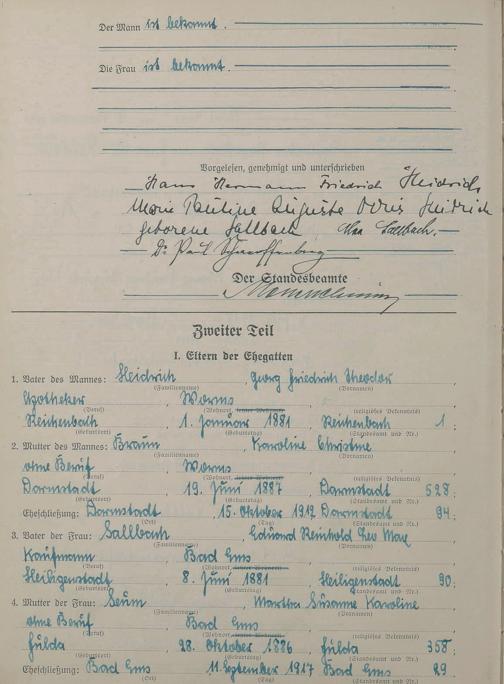 Der Mann ist bekannt.
Die Frau ist bekannt.
Vorgelesen, genehmigt und unterschrieben
Hans Hermann Friedrich Heidrich
Marie Pauline Auguste Doris Heidrich
geborene Sallbach Sallbach.
Dr. Paul
Der Standesbeamte
Zweiter Teil
I. Eltern der Ehegatten
1. Vater des Mannes: Heidrich, Georg Friedrich Theodor
(Familienname) (Vornamen)
Apotheker, Worms
(Beruf) (Wohnort, religiöses Bekenntnis)
Reichenbach, 1. Januar 1881, Reichenbach 1;
(Geburtsort) (Geburtstag) (Standesamt und Nr.)
2. Mutter des Mannes: Braun, Karoline Christine
(Familienname) (Vornamen)
ohne Beruf, Worms
(Beruf) (Wohnort, religiöses Bekenntnis)
Darmstadt, 19. Juni 1887, Darmstadt 528;
(Geburtsort) (Geburtstag) (Standesamt und Nr.)
Eheschließung: Darmstadt, 15. Oktober 1912 Darmstadt 94.
(Ort) (Tag) (Standesamt und Nr.)
3. Vater der Frau: Sallbach, Eduard Reinhold Leo Max
(Familienname) (Vornamen)
Kaufmann, Bad Ems
(Beruf) (Wohnort, religiöses Bekenntnis)
Heiligenstadt, 8. Juni 1881, Heiligenstadt 90.
(Geburtsort) (Geburtstag) (Standesamt und Nr.)
4. Mutter der Frau: Martha Susanne Karoline
(Familienname) (Vornamen)
ohne Beruf, Bad Ems
(Beruf) (Wohnort, religiöses Bekenntnis)
Fulda, 28. Oktober 1886, Fulda 358;
(Geburtsort) (Geburtstag) (Standesamt und Nr.)
Eheschließung: Bad Ems 11. September 1917 Bad Ems 29
(Ort) (Tag) (Standesamt und Nr.)